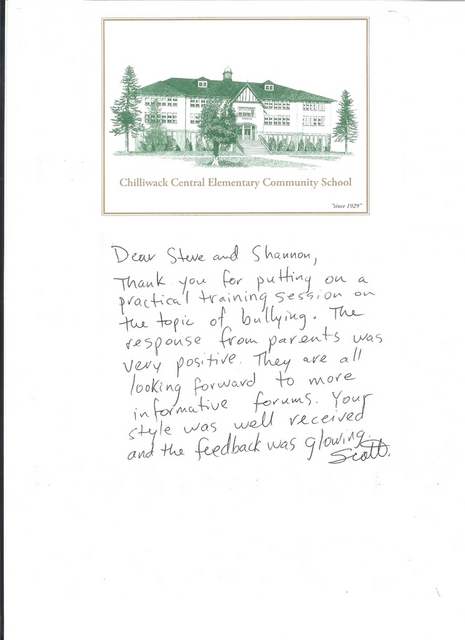 Chilliwack Central Elementary Community School
"since 1929"
Dear Steve and Shannon,
Thank you for putting on a
practical training session on
the topic of bullying. The
response from parents was
very positive. They are all
looking forward to more
informative forums. Your
style was well received
and the feedback was glowing.
Scott.